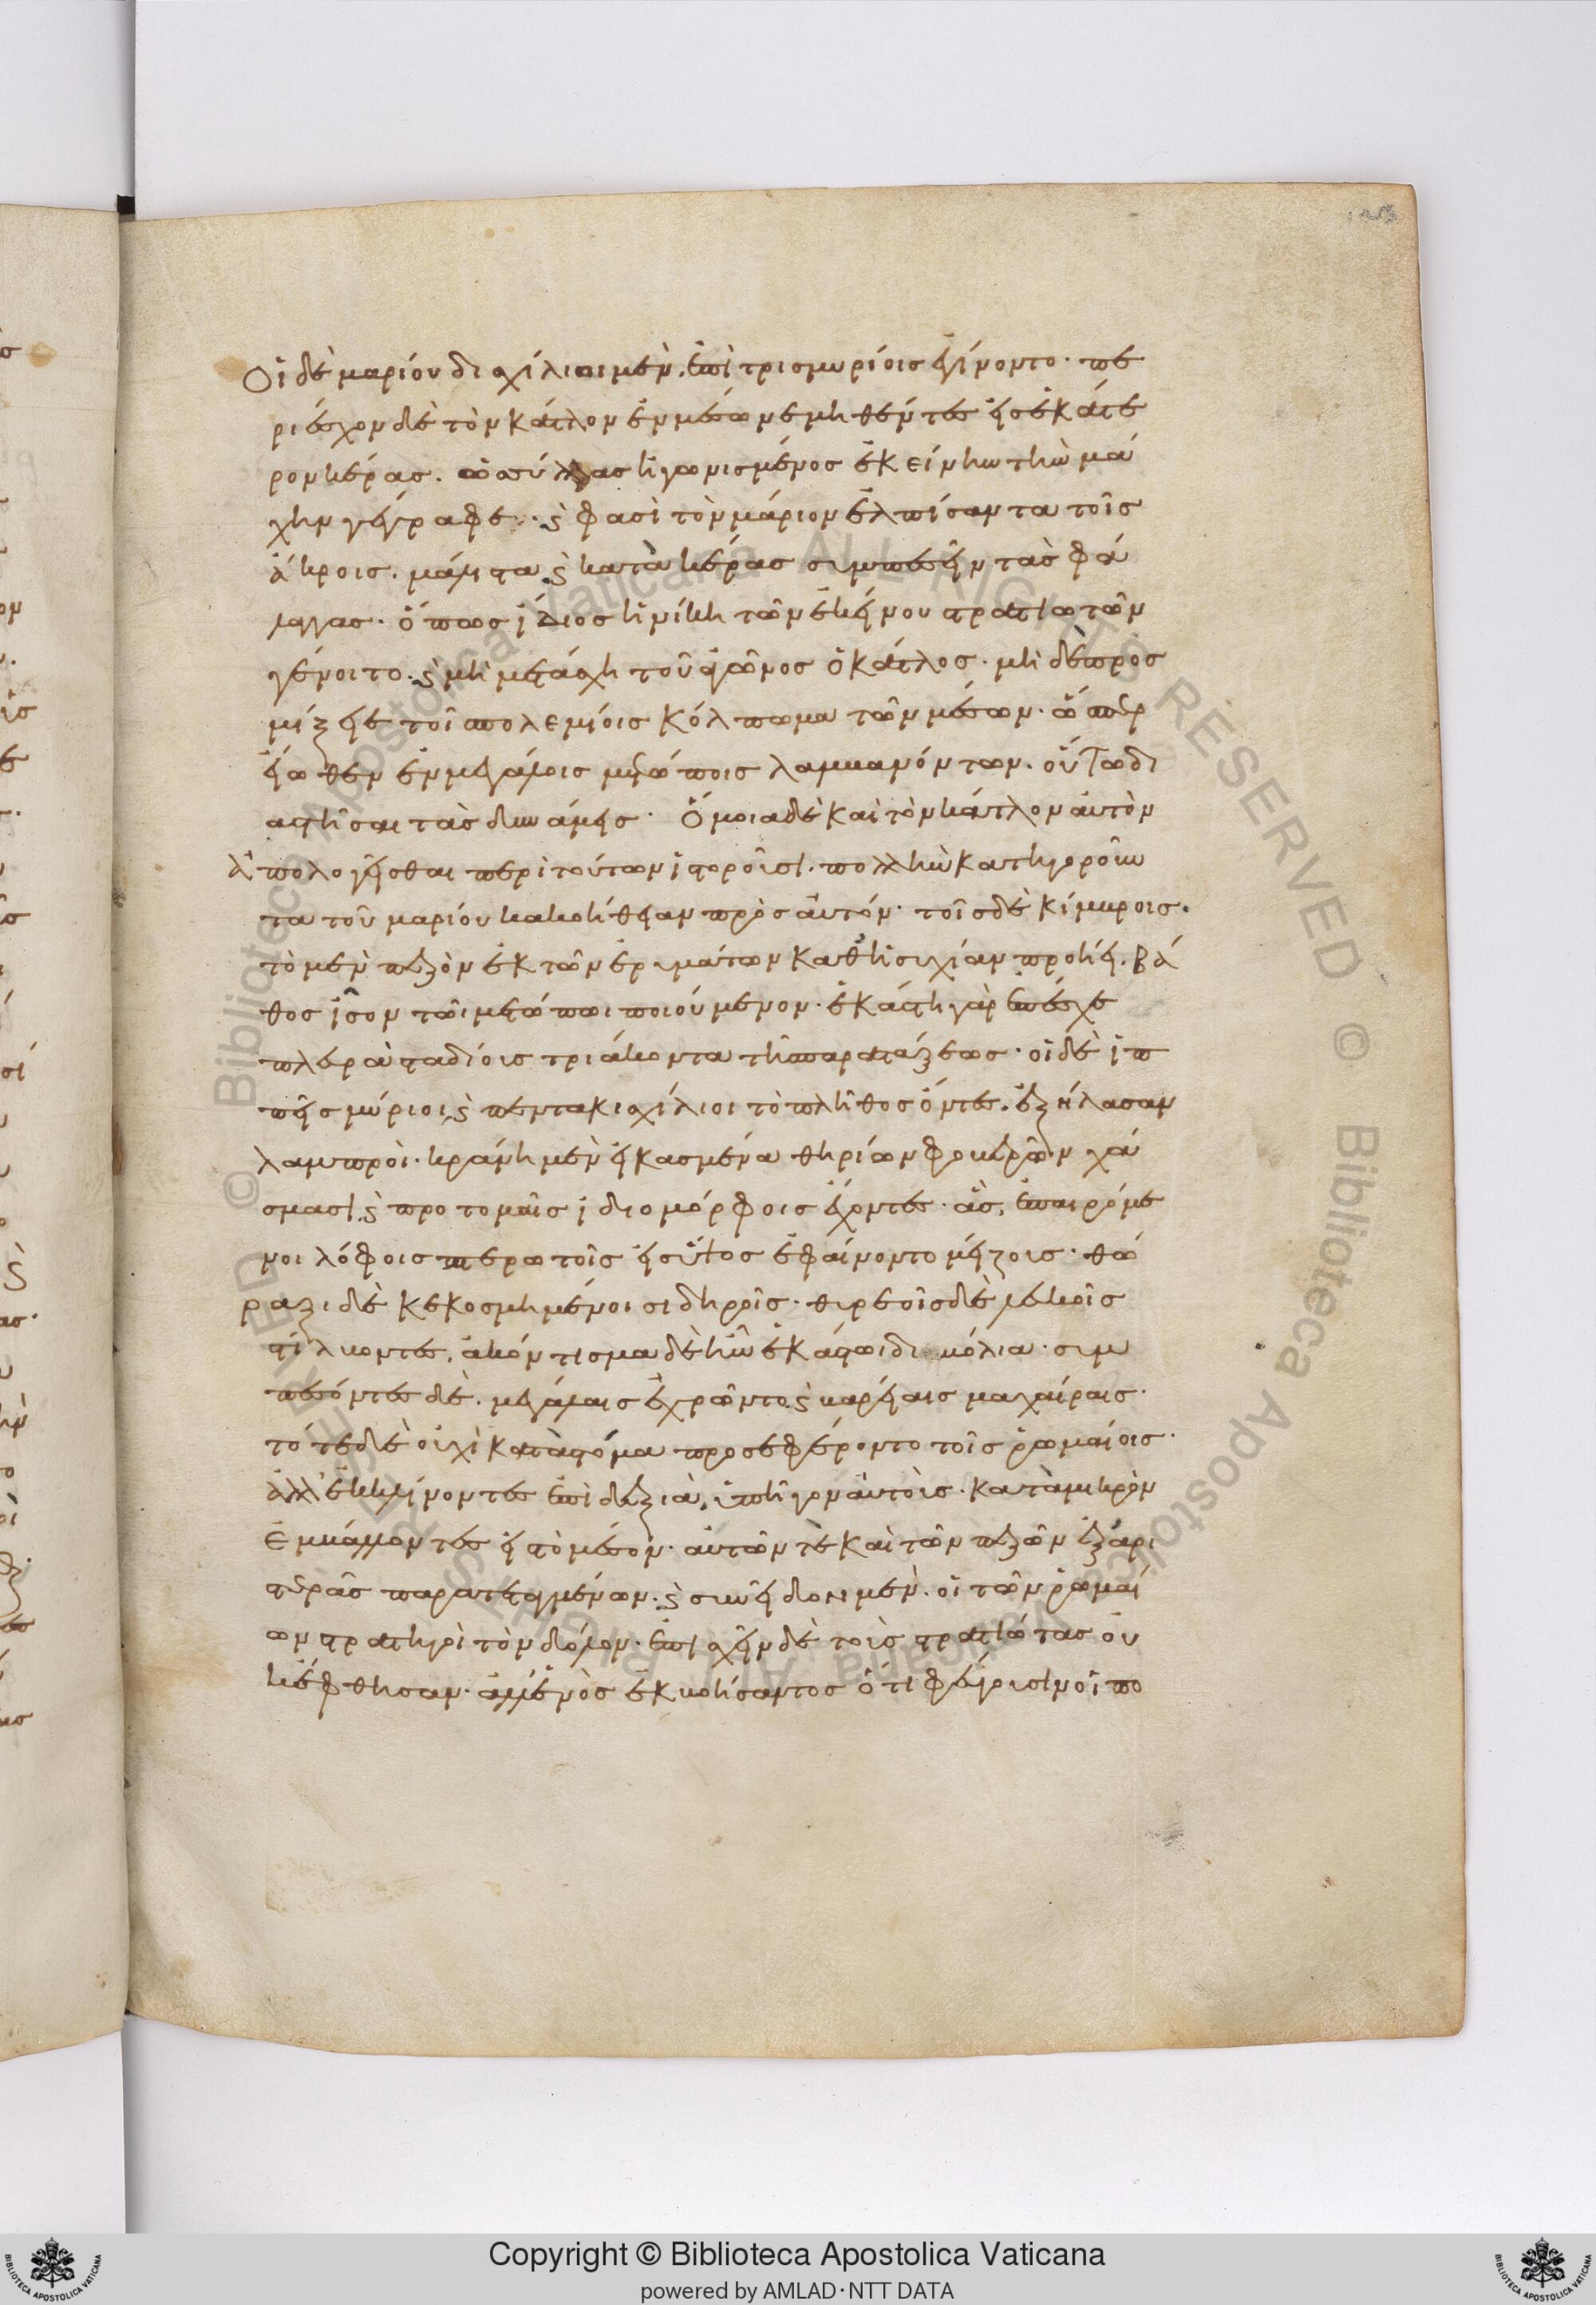 οἱ δὲ μαρίου δισχίλιοι μὲν, ἐπὶ τρισμυρίοις ἐγίνοντο· πε
ριέσχον δὲ τὸν κάτλον ἐν μέσω νεμηθέντες εἰς ἑκάτε
ρον κέρας. ὡς σύλλας ἠγωνισμένος ἐκείνην τὴν μά
χην γέγραφε· ϗ φασὶ τὸν μάριον ἐλπίσαντα τοῖς
ἄκροις. μάλιστα ϗ κατὰ κέρας συμπεσεῖν τὰς φά
λαγγας· ὅπως ἴδιος ἡ νίκη τῶν ἐκείνου στρατιωτῶν
γένοιτο. ϗ μὴ μετάσχη τοῦ ἀγῶνος ὁ κάτλος· μὴ δὲ προσ
μίξειε τοῖ πολεμίοις κόλπωμα τῶν μέσων· ὥσπερ
εἴωθεν ἐν μεγάλοις μετώποις λαμβανόντων. οὕτω δι
αστῆσαι τὰς δυνάμεις· ὅμοια δὲ καὶ τὸν κάτλον αὐτὸν
ἀπολογεῖσθαι περὶ τούτων ἱστοροῦσι. πολλὴν κατηγοροῦν
τα τοῦ μαρίου κακοήθειαν πρὸς αὐτόν· τοῖς δὲ κίμβροις.
τὸ μὲν πεζὸν ἐκ τῶν ἐρυμάτων καθ' ἡσυχίαν προήει. βά
θος ἴσον τῶι μετώπωι ποιούμενον· ἑκάστη γὰρ ἐπέσχε
πλευρὰ σταδίοις τριάκοντα τῆ παρατάξεως· οἱ δὲ ἱπ
πεῖς μύριοι ϗ πεντακισχίλιοι τὸ πλῆθος ὄντες. ἐξήλασαν
λαμπροὶ· κράνη μὲν εἰκασμένα θηρίων φοβερῶν χά
σμασι ϗ προτομαῖς ἰδιομόρφοις ἔχοντες· ἃς, ἐπαιρόμε
νοι λόφοις πτερωτοῖς εἰς ὕψος ἐφαίνοντο μείζους· θώ
ραξι δὲ κεκοσμημένοι σιδηροῖς· θυρεοῖς δὲ λευκοῖς
στίλβοντες. ἀκόντισμα δὲ ἦν ἑκάστωι διβολία· συμ
πεσόντες δὲ. μεγάλαις ἐχρῶντο ϗ βαρείαις μαχαίραις·
τότε δὲ οὐχὶ κατὰ στόμα προσεφέροντο τοῖς ῥωμαίοις·
ἀλλ' ἐκκλίνοντες ἐπὶ δεξιὰ, ὑπῆγον αὐτοὺς· κατὰ μικρὸν
ἐμβάλλοντες εἰς τὸ μέσον· αὐτῶν τὲ καὶ τῶν πεζῶν ἐξ ἀρι
στερᾶς παρατεταγμένων. ϗ συνεῖδον μὲν. οἱ τῶν ῥωμαί
ων στρατηγοὶ τὸν δόλον· ἐπισχεῖν δὲ τοὺς στρατιώτας οὐ
κ ἔφθησαν· ἀλλ' ἑνὸς ἐκβοήσαντος ὅτι φεύγουσιν οἱ πο